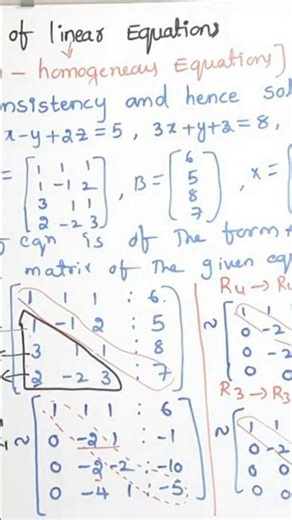 of linear Equations
- homogeneous Equations]
nsistency and hence sol
x-y+2z=5, 3x+y+z=8,
= [1 1 1
1 -1 2
3 1 1
2 -2 3], B= [6
5
8
7], x=
eqn is of The form
matrix of The given equ
1 1 1 : 6
1 -1 2 : 5
3 1 1 : 8
2 -2 3 : 7
~ [1 1 1 : 6
0 -2 1 : -1
0 -2 -2 -10
0 -4 1 : -5]
R4 → R4
~ [1 1
0 -2
0 -2
0 0
R3 → R3
~ [1 1
0 -2
0 0
0 0